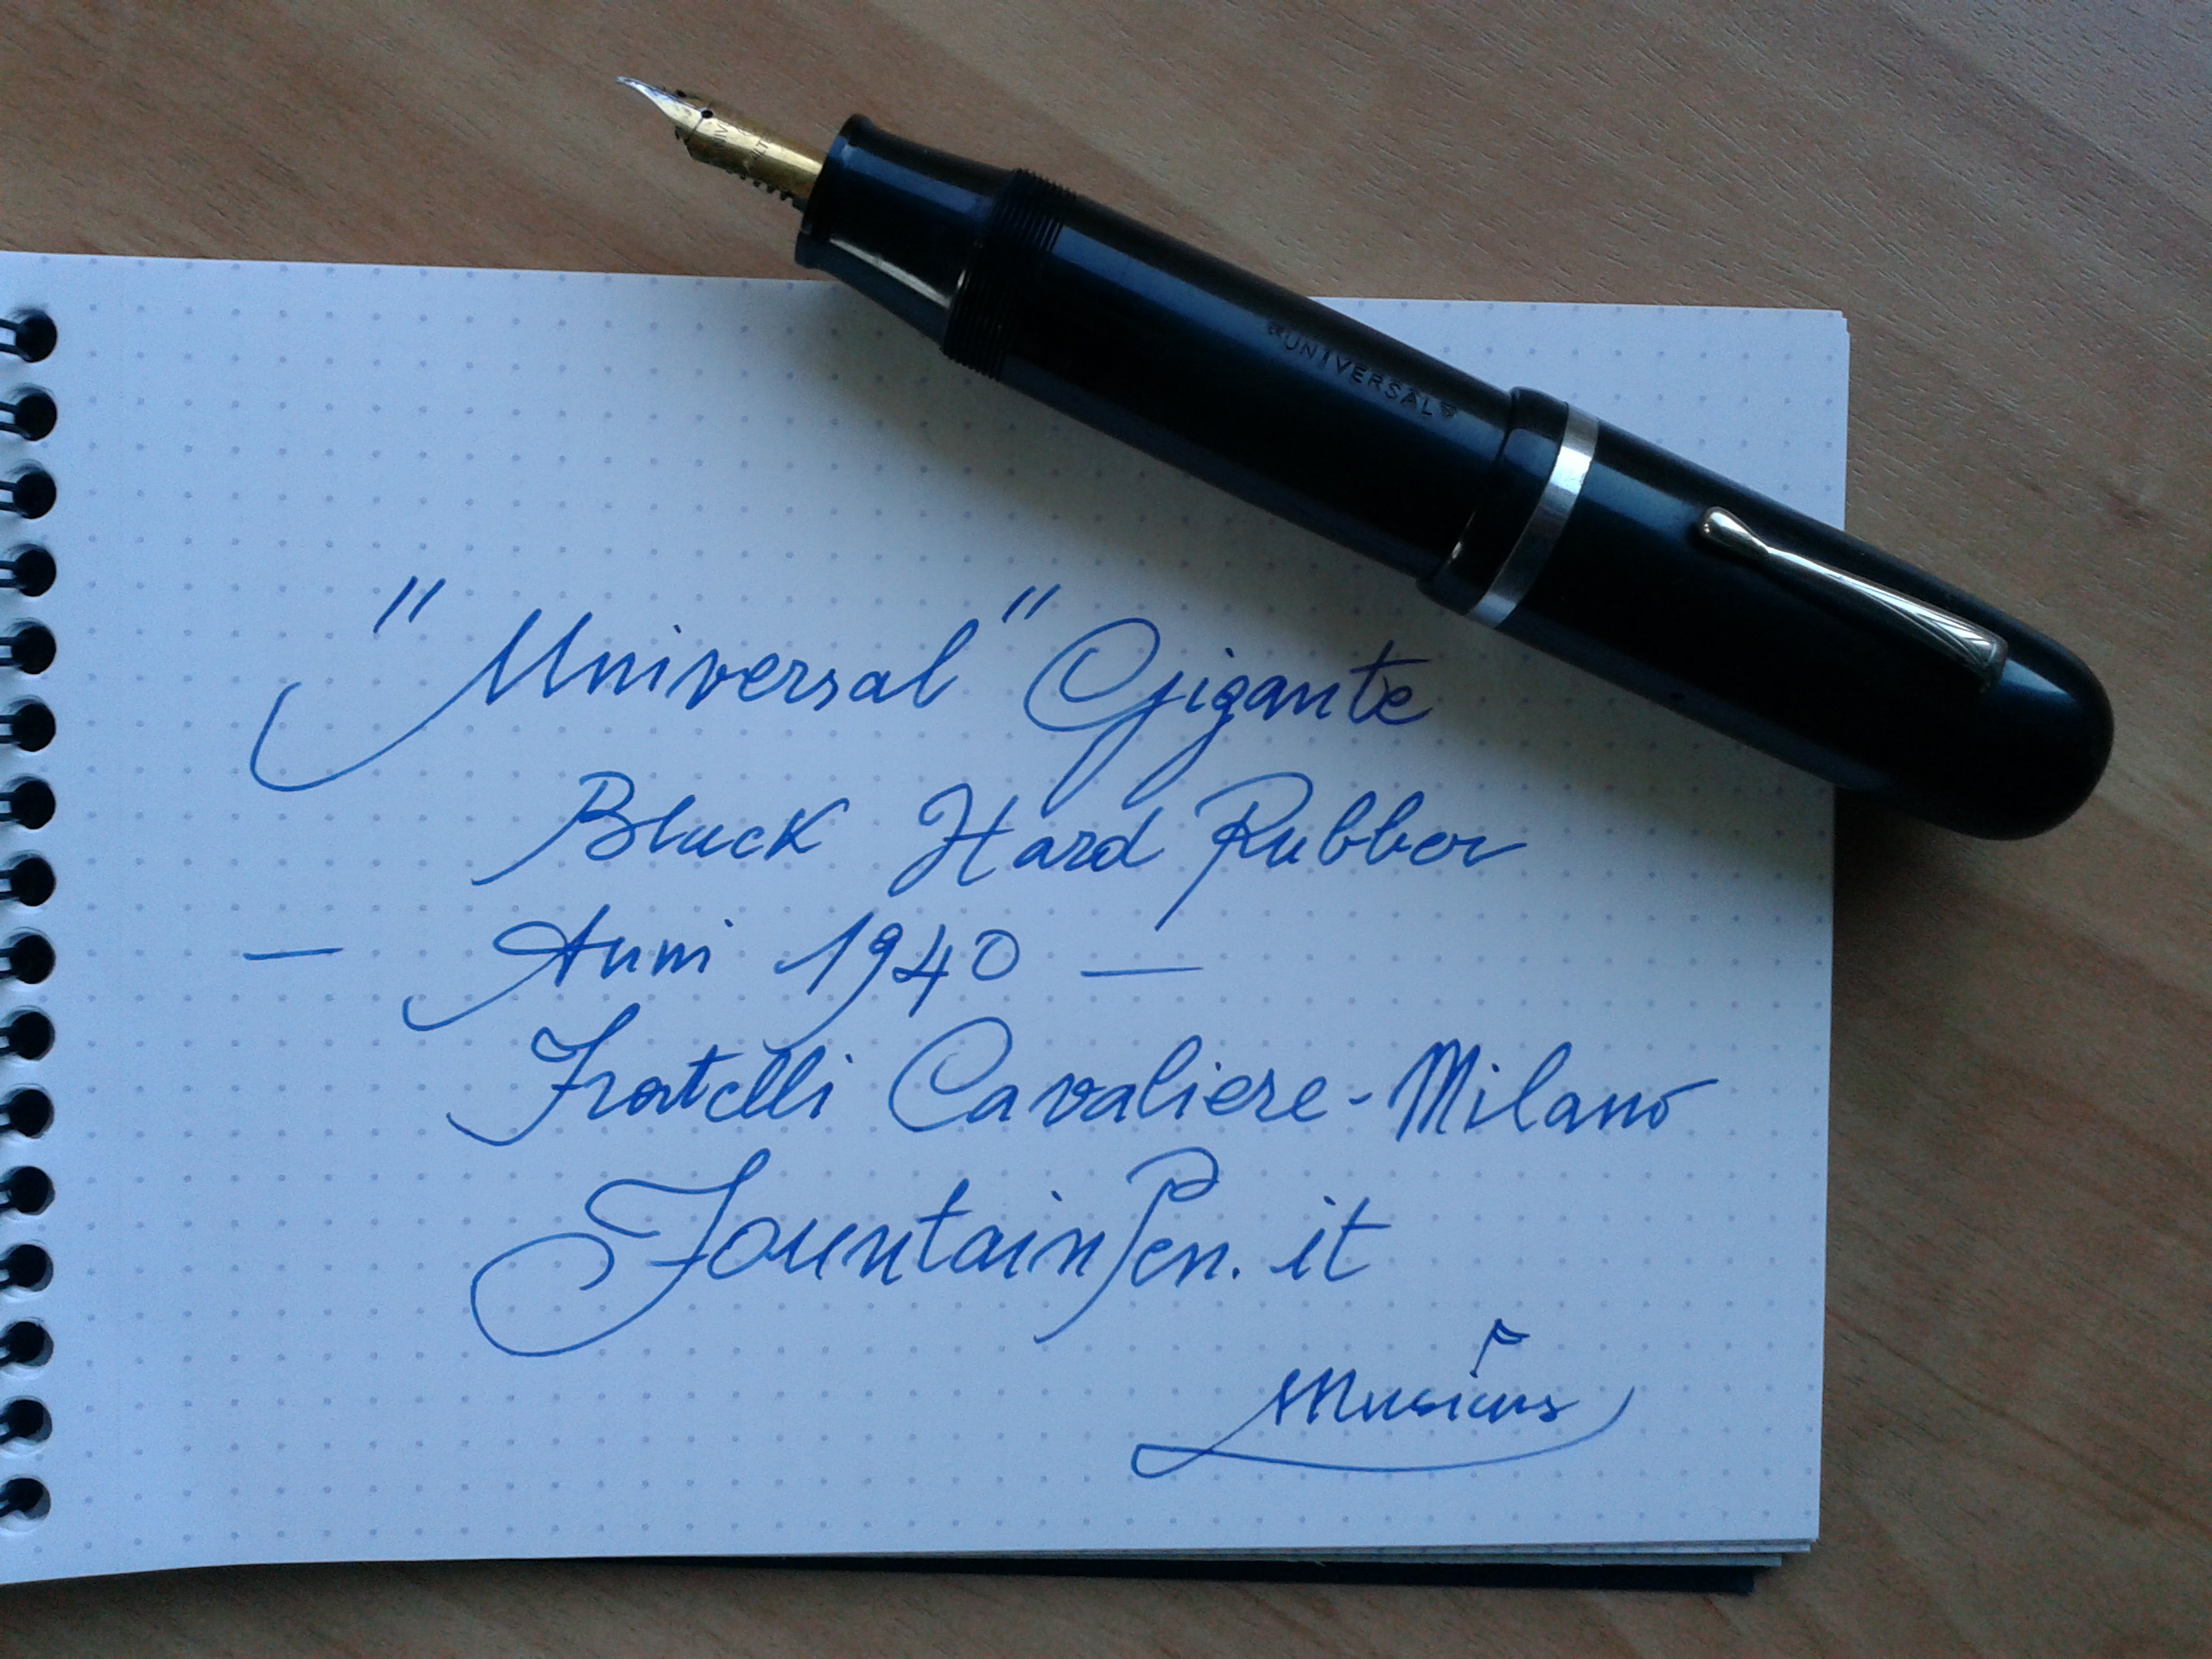 «UNIVERSAL»
"Universal" Gigante
Black Hard Rubber
— Anni 1940 —
Fratelli Cavaliere - Milano
FountainPen.it
Musicus